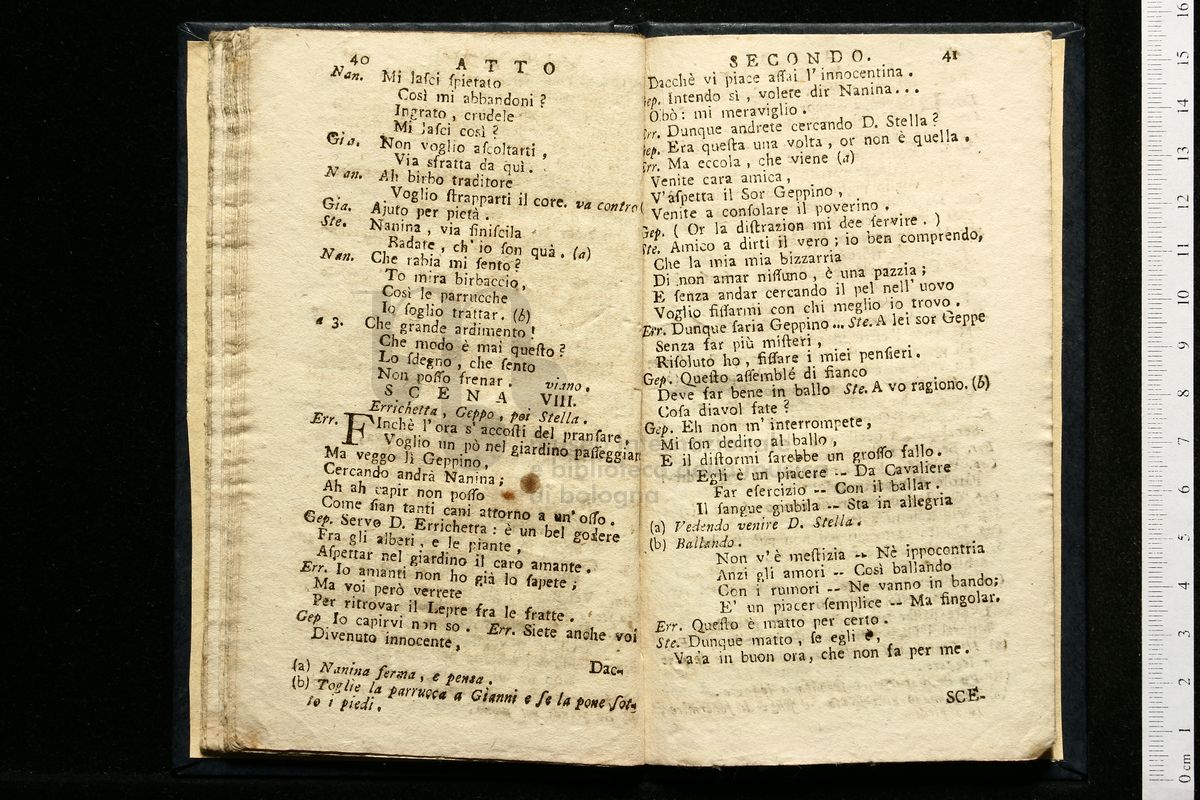 40
ATTO
Nan. Mi laſci ſpietato
Così mi abbandoni ?
Ingrato , crudele
Mi laſci così ?
Gia. Non voglio aſcoltarti ,
Via sfratta da quì .
Nan. Ah birbo traditore
Voglio ſtrapparti il core. va contro
Gia. Ajuto per pietà .
Ste. Nanina , via finiſcila
Badate , ch' io ſon quà . (a)
Nan. Che rabia mi ſento ?
To mira birbaccio ,
Così le parrucche
Io ſoglio trattar. (b)
a 3. Che grande ardimento !
Che modo è mai queſto ?
Lo ſdegno , che ſento
Non poſſo frenar . viano .
SCENA VIII.
Errichetta , Geppo , poi Stella .
Err. FInchè l'ora s' accoſti del pranſare ,
Voglio un pò nel giardino paſſeggiar
Ma veggo lì Geppino ,
Cercando andrà Nanina ;
Ah ah capir non poſſo
Come ſian tanti cani attorno a un' oſſo .
Gep. Servo D. Errichetta : è un bel godere
Fra gli alberi , e le piante ,
Aſpettar nel giardino il caro amante .
Err. Io amanti non ho già lo ſapete ;
Ma voi però verrete
Per ritrovar il Lepre fra le fratte .
Gep Io capirvi non so . Err. Siete anche voi
Divenuto innocente ,
Dac-
(a) Nanina ferma , e pensa .
(b) Toglie la parrucca a Gianni e ſe la pone ſot-
to i piedi .
SECONDO.
41
Dacchè vi piace aſſai l'innocentina .
Gep. Intendo sì , volete dir Nanina...
Obò : mi meraviglio .
Err. Dunque andrete cercando D. Stella ?
Gep. Era queſta una volta , or non è quella .
Err. Ma eccola , che viene (a)
Venite cara amica ,
V'aſpetta il Sor Geppino ,
Venite a conſolare il poverino .
Gep. ( Or la diſtrazion mi dee ſervire . )
Ste. Amico a dirti il vero ; io ben comprendo,
Che la mia mia bizzarria
Di non amar niſſuno , è una pazzia ;
E ſenza andar cercando il pel nell' uovo
Voglio fiſſarmi con chi meglio io trovo .
Err. Dunque ſaria Geppino ... Ste. A lei sor Geppe
Senza far più miſteri ,
Riſoluto ho , fiſſare i miei penſieri .
Gep. Queſto aſſemblé di fianco
Deve far bene in ballo Ste. A vo ragiono. (b)
Coſa diavol fate ?
Gep. Eh non m' interrompete ,
Mi ſon dedito al ballo ,
E il diſtormi ſarebbe un groſſo fallo .
Egli è un piacere -- Da Cavaliere
Far eſercizio -- Con il ballar .
Il ſangue giubila -- Sta in allegria
(a) Vedendo venire D. Stella .
(b) Ballando .
Non v' è meſtizia -- Nè ippocontria
Anzi gli amori -- Così ballando
Con i rumori -- Ne vanno in bando;
E' un piacer ſemplice -- Ma ſingolar.
Err. Queſto è matto per certo .
Ste. Dunque matto , ſe egli è ,
Vada in buon ora , che non fa per me .
SCE-
16
15
14
13
12
11
10
9
8
7
6
5
4
3
2
1
0 cm
e biblioteca
di bologna